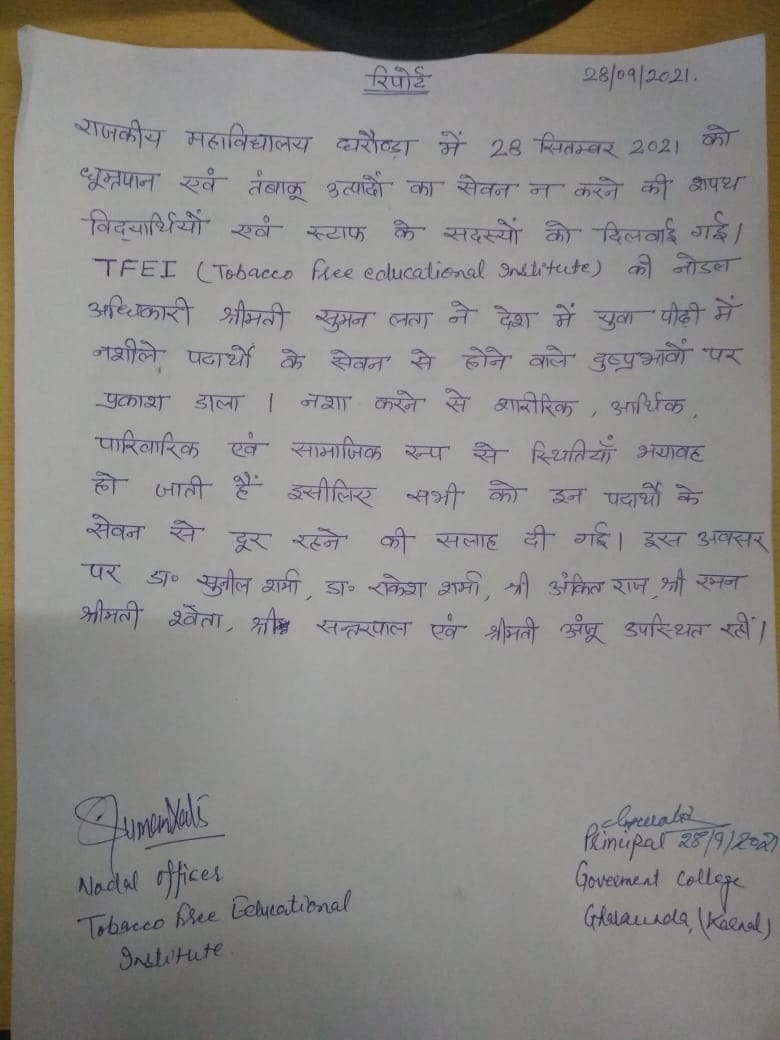 रिपोर्ट 28/09/2021.
राजकीय महाविद्यालय घरौण्डा में 28 सितम्बर 2021 को
धूम्रपान एवं तंबाकू उत्पादों का सेवन न करने की शपथ
विद्यार्थियों एवं स्टाफ के सदस्यों को दिलवाई गई।
TFEI (Tobacco free educational Institute) की नोडल
अधिकारी श्रीमती सुमन लता ने देश में युवा पीढ़ी में
नशीले पदार्थों के सेवन से होने वाले दुष्प्रभावों पर
प्रकाश डाला । नशा करने से शारीरिक, आर्थिक,
पारिवारिक एवं सामाजिक रूप से स्थितियाँ भयावह
हो जाती हैं इसीलिए सभी को इन पदार्थों के
सेवन से दूर रहने की सलाह दी गई। इस अवसर
पर डा॰ सुनील शर्मा, डा॰ राकेश शर्मा, श्री अंकित राज, श्री रमन
श्रीमती श्वेता, श्री सन्तरपाल एवं श्रीमती अंजू उपस्थित रहीं।
Suman Lata
Nodal officer
Tobacco free Educational
Institute
Principal 28/9/2021
Goverment College
Gharaunda, (Karnal)